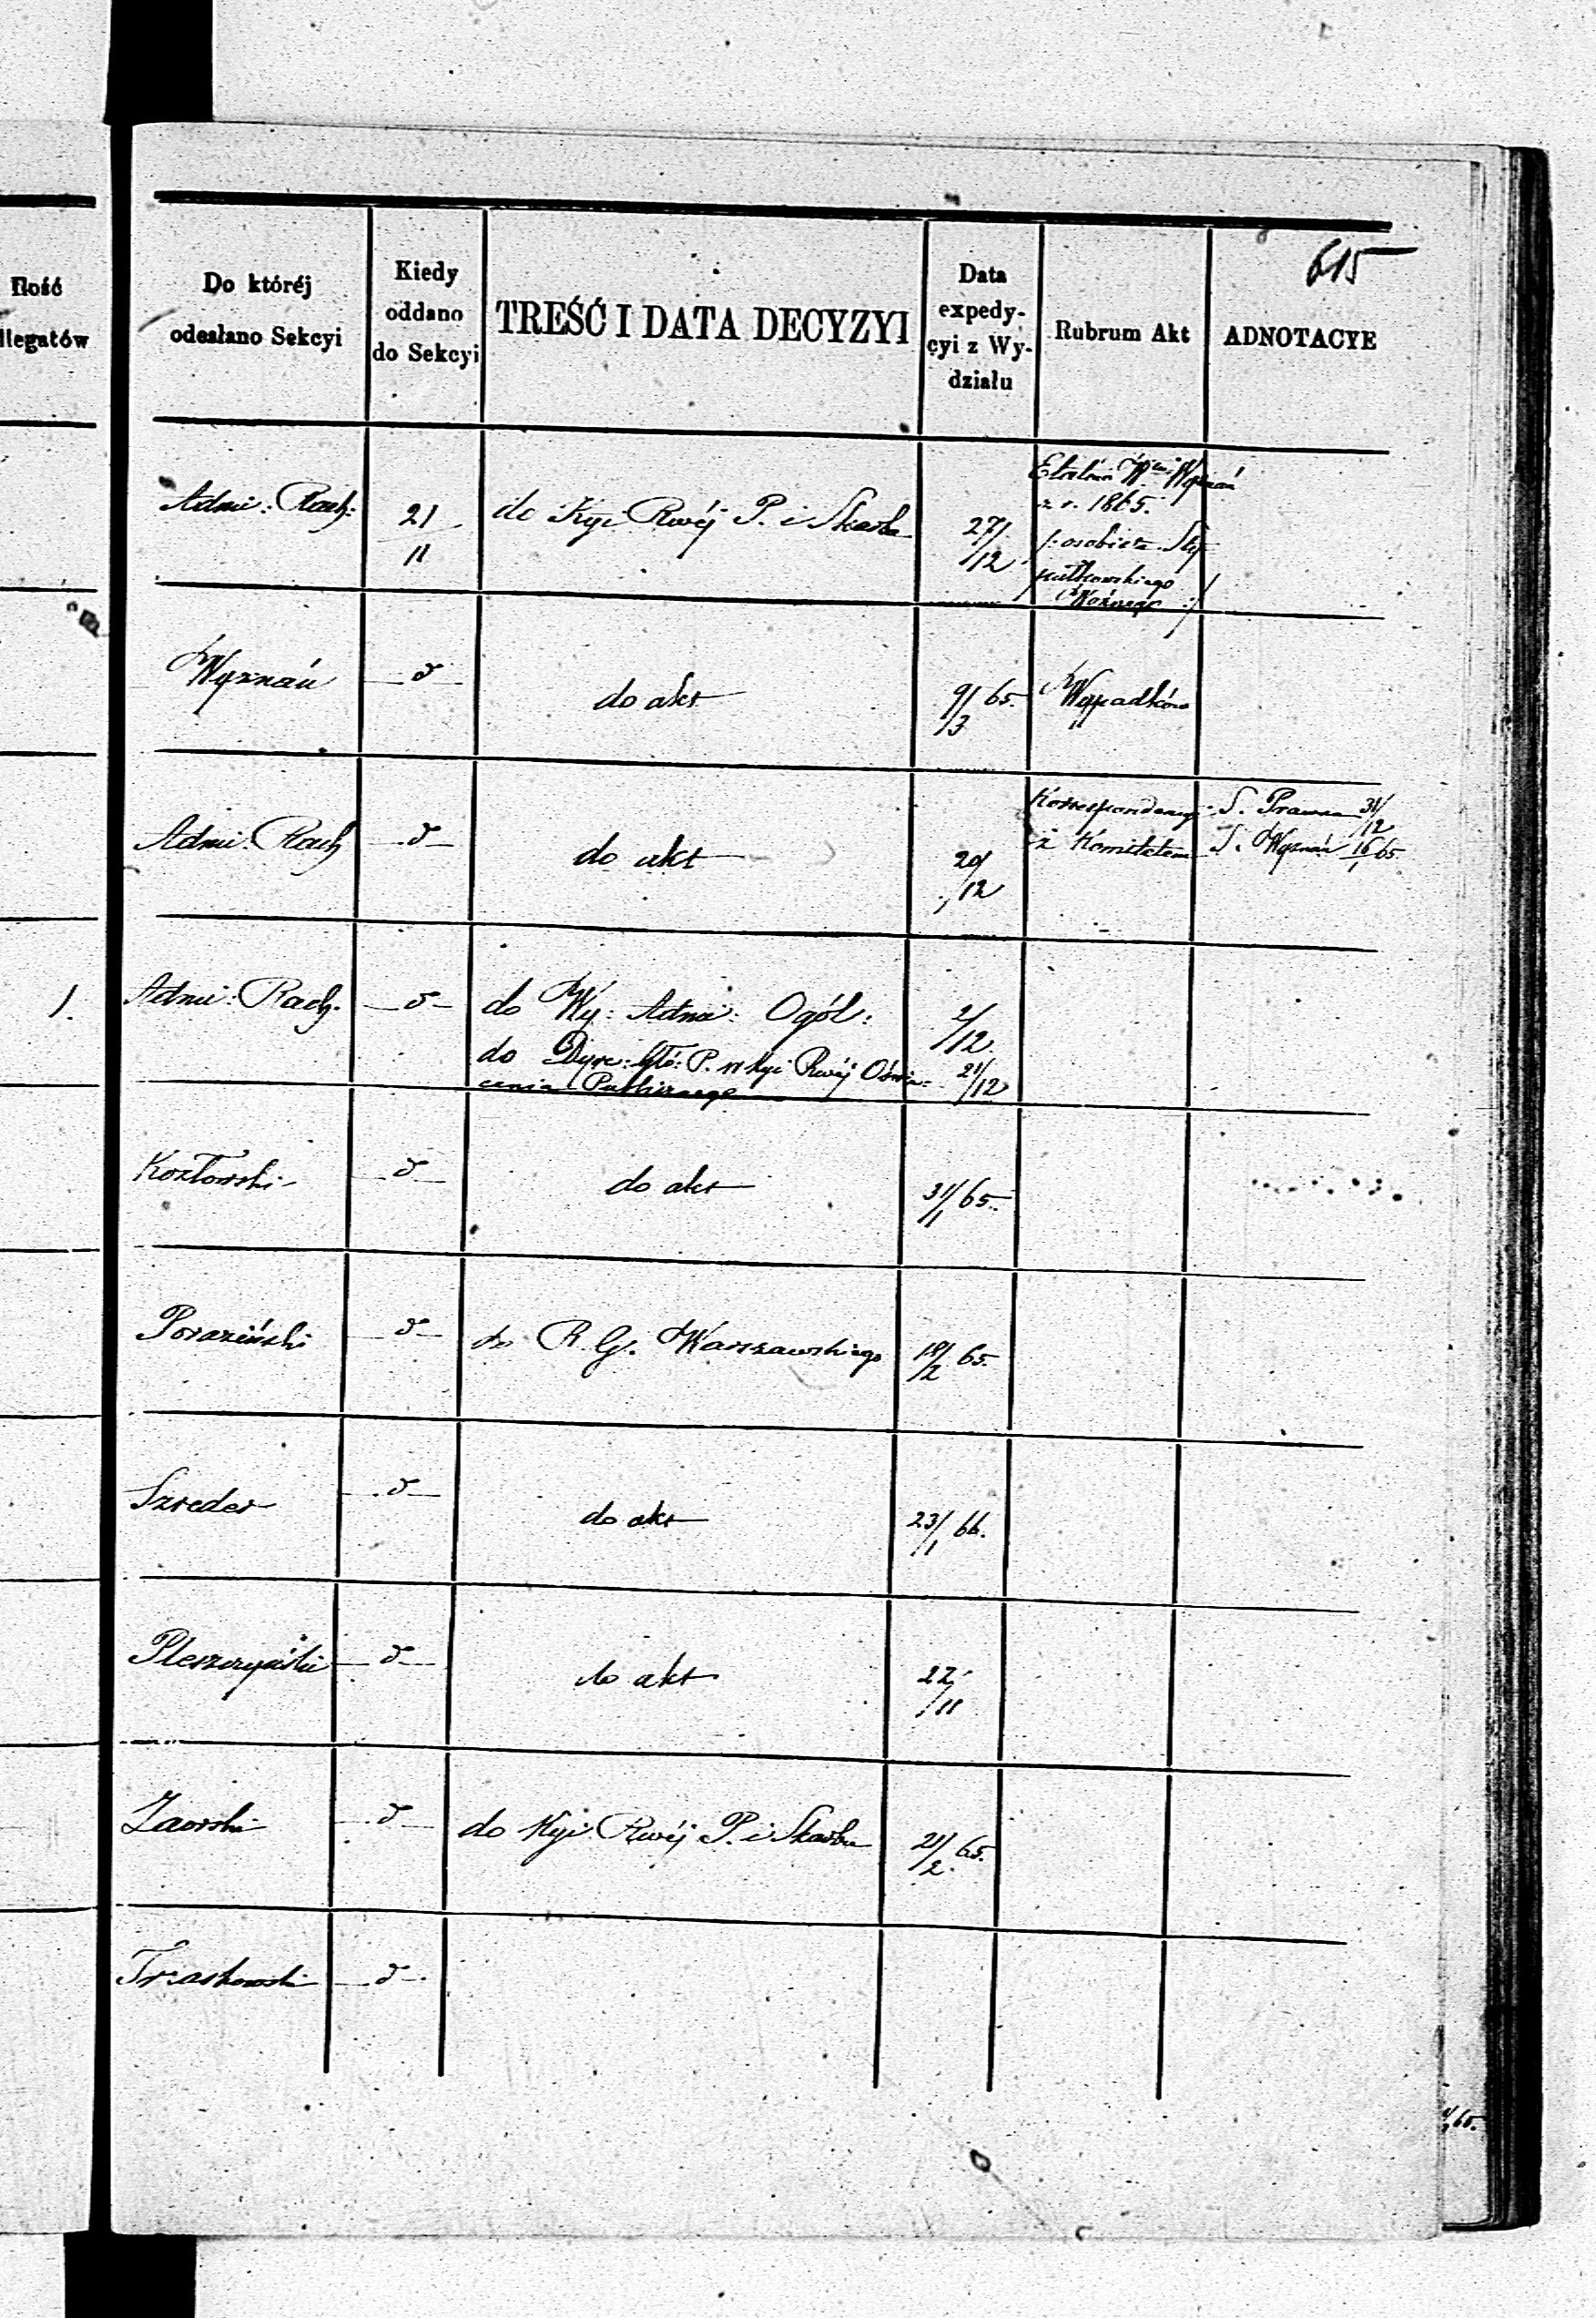 615
Ilość
llegatów
Do któréj
odesłano Sekcyi
Kiedy
oddano
do Sekcyi
TREŚĆ I DATA DECYZYI
Data
expedy-
cyi z Wy-
działu
Rubrum Akt
ADNOTACYE
Admi: Rach: 21/11 do Kyi Rwéj P. i Skarbu 27/12
Wyznań
z r. 1865.
/: osobista
Wyznań —d— do akt 9/3 65. Wypadków
Admi: Rach —d— do akt 20/12
Korrespondencyi S. Prawna 31/12
z Komitetem S. Wyznań 16/1 65.
1. Admi: Rach. —d— do Wy: Admi: Ogól: 2/12.
do Dyre: Głó: P. w Kyi Rwéj Oświe= 21/12
cenia Publicznego
Kozłowski —d— do akt 31/1 65.
Poraziński —d— do R. G. Warszawskiego 18/2 65.
Szreder —d— do akt 23/1 66.
Pleszczyński —d— do akt 22/11
Zaorski —d— do Kyi Rwéj P. i Skarbu 21/2 65.
Trzaskowski —d—
/65.